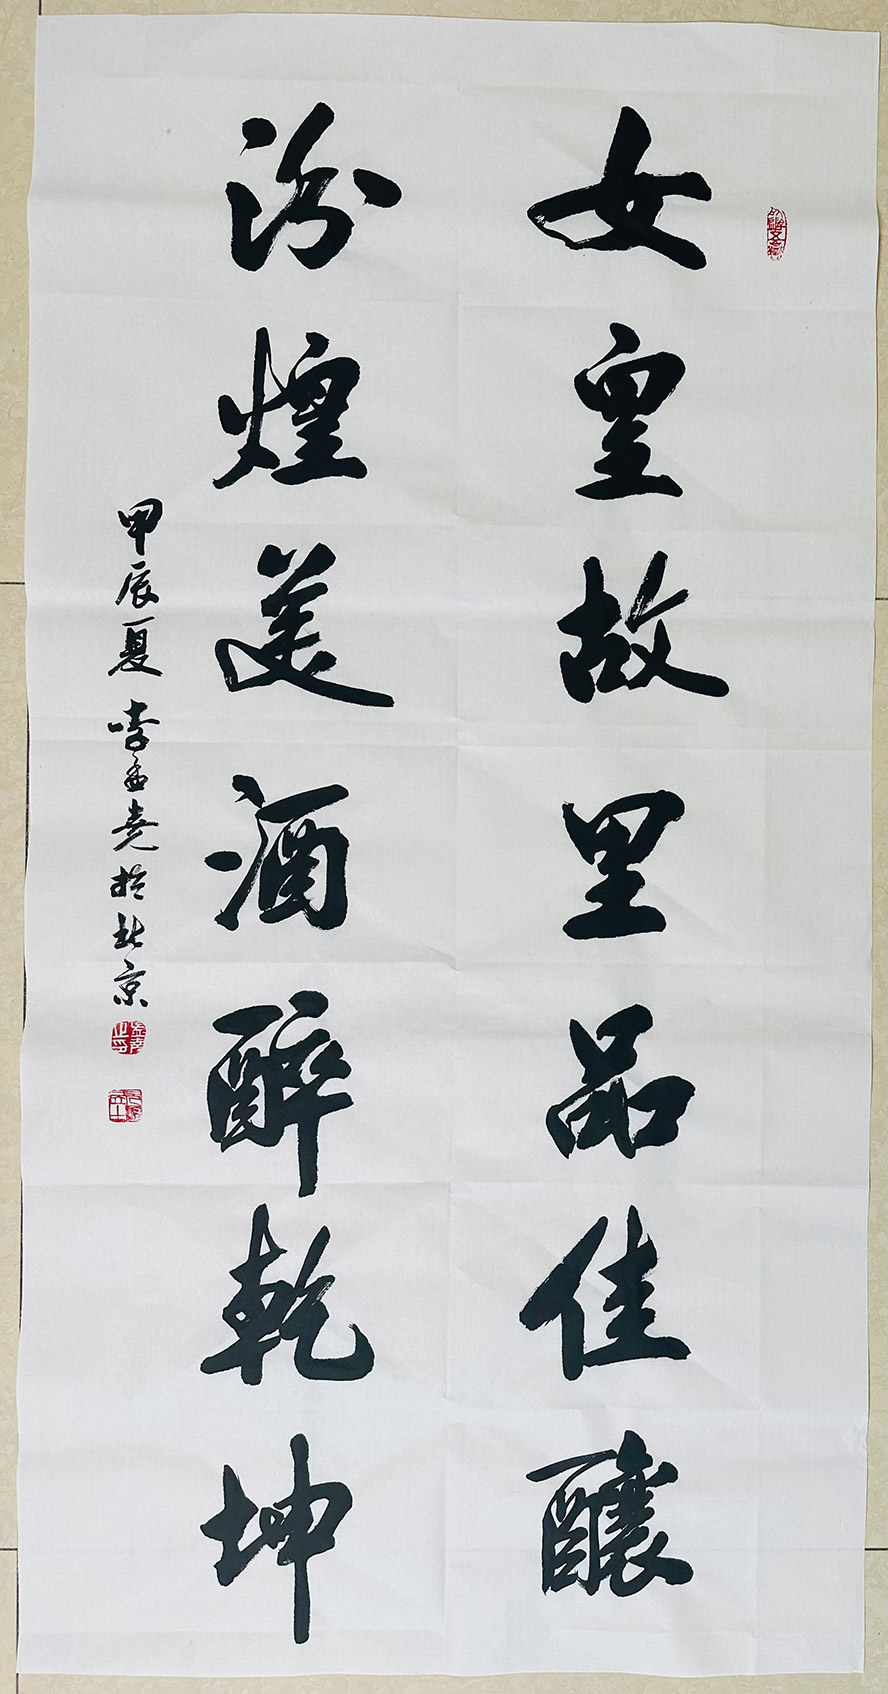 女皇故里品佳釀
汾煌美酒醉乾坤
甲辰夏李孟尧於北京